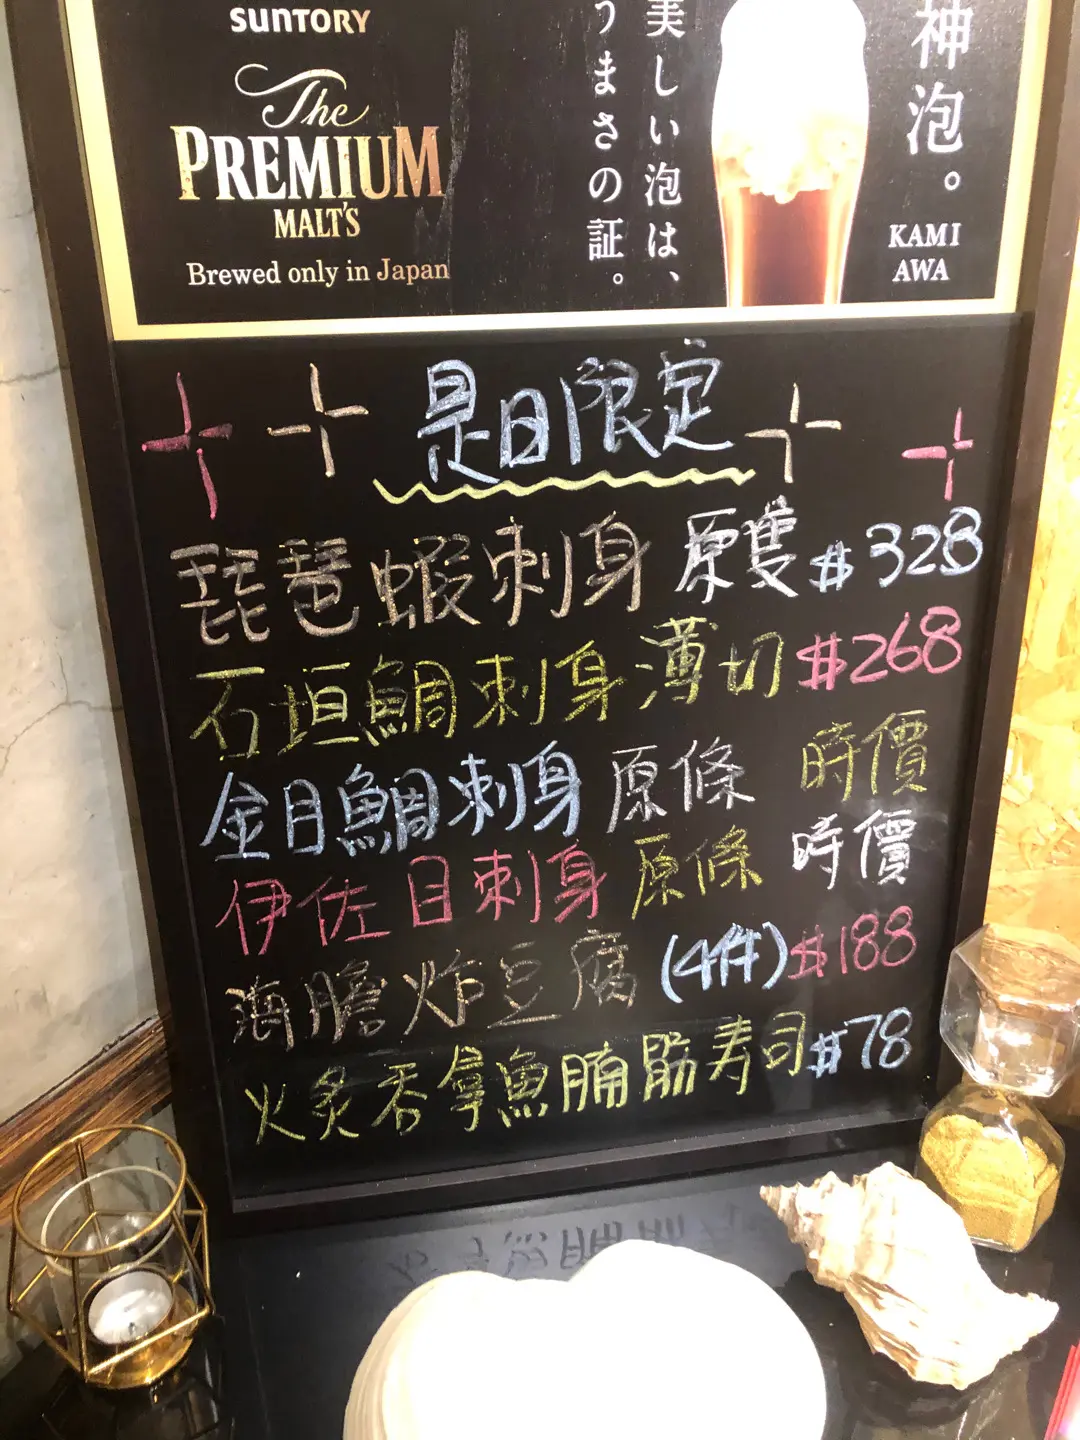 SUNTORY
The
PREMIUM
MALT'S
Brewed only in Japan
神泡。
KAMI
AWA
美しい泡は、
うまさの証。
是日限定
琵琶蝦刺身 原隻 $328
石垣鯛刺身薄切 $268
金目鯛刺身 原條 時價
伊佐目刺身 原條 時價
海膽炸豆腐 (4件) $188
火炙吞拿魚腩筋壽司 $78